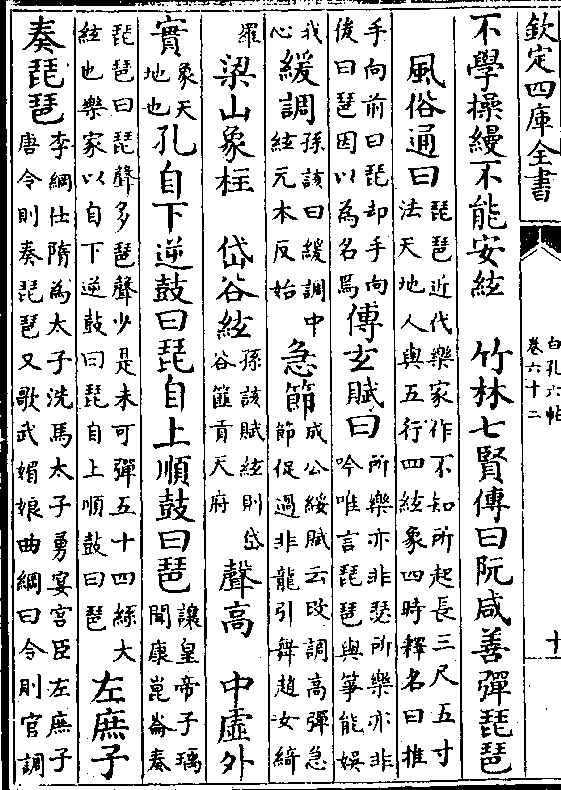 欽定四庫全書
白孔六帖
卷六十二
十
不學操縵不能安絃 竹林七賢傳曰阮咸善彈琵琶
風俗通曰琵琶近代樂家作不知所起長三尺五寸
法天地人與五行四絃象四時釋名曰推
手向前曰琵却手向
後曰琶因以為名焉傅玄賦曰所樂亦非瑟所樂亦非
吟唯言琵琶與箏能娛
我
心緩調孫該曰緩調中
絃元本反始急節成公綏賦云改調高彈急
節促過非龍引舞趙女綺
羅梁山象柱 岱谷絃孫該賦絃則岱
谷篚貢天府聲高 中虚外
實象天
地也孔自下逆鼓曰琵自上順鼓曰琶讓皇帝子瑀
聞康崑崙奏
琵琶曰琵聲多琶聲少是未可彈五十四絲大
絃也樂家以自下逆鼓曰琵自上順鼓曰琶左庶子
奏琵琶李綱仕隋為太子洗馬太子勇宴宫臣左庶子
唐令則奏琵琶又歌武媚娘曲綱曰令則官調